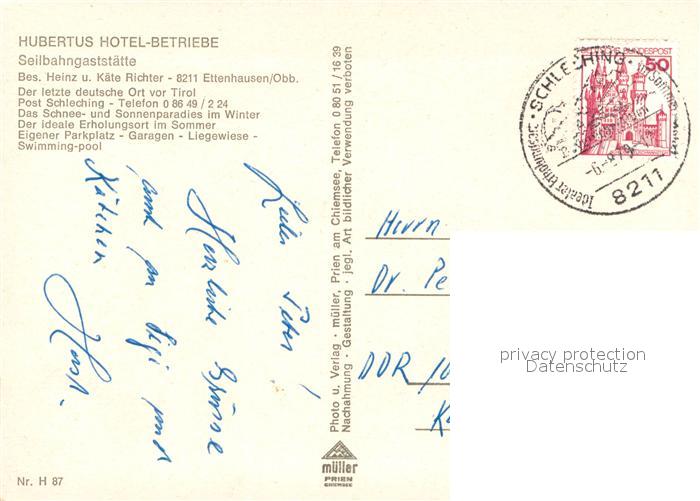 HUBERTUS HOTEL-BETRIEBE
Seilbahngaststätte
Bes. Heinz u. Käte Richter - 8211 Ettenhausen/Obb.
Der letzte deutsche Ort vor Tirol
Post Schleching - Telefon 0 86 49 / 2 24
Das Schnee- und Sonnenparadies im Winter
Der ideale Erholungsort im Sommer
Eigener Parkplatz - Garagen - Liegewiese -
Swimming-pool
Lieber Peter!
Herzliche Grüsse
auch an Sigi und
Kätchen
Horst.
Photo u. Verlag · müller, Prien am Chiemsee, Telefon 0 80 51 / 16 39
Nachahmung - Gestaltung · jegl. Art bildlicher Verwendung verboten
müller
PRIEN
CHIEMSEE
BUNDESPOST
50
SCHLECHING
8211
Herrn
Dr. Pe
DDR
privacy protection
Datenschutz
Nr. H 87